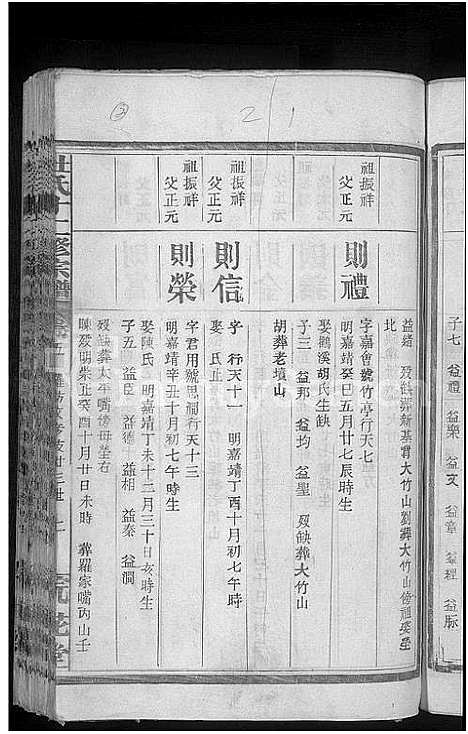 子七 益禮 益樂 益文 益章 益經 益脉
益緒 歿缺葬新基背大竹山劉葬大竹山傍祖婆塋
北
祖振祥
父正元
則禮
字嘉會號竹亭行天七
明嘉靖癸巳五月廿七辰時生
娶鸛溪胡氏生缺
子三 益邦 益均 益聖 歿缺葬大竹山
胡葬老墳山
祖振祥
父正元
則信
字 行天十一 明嘉靖丁酉十月初七午時
娶 氏正
祖振祥
父正元
則榮
字君用號思澗行天十三
明嘉靖辛丑十月初七午時生
娶陳氏 明嘉靖丁未十二月三十日亥時生
子五 益臣 益德 益相 益泰 益澗
歿缺葬太平嘴傍母塋右
陳歿明崇正癸酉十月廿日未時 葬羅家嘴丙山壬
氏十修宗譜